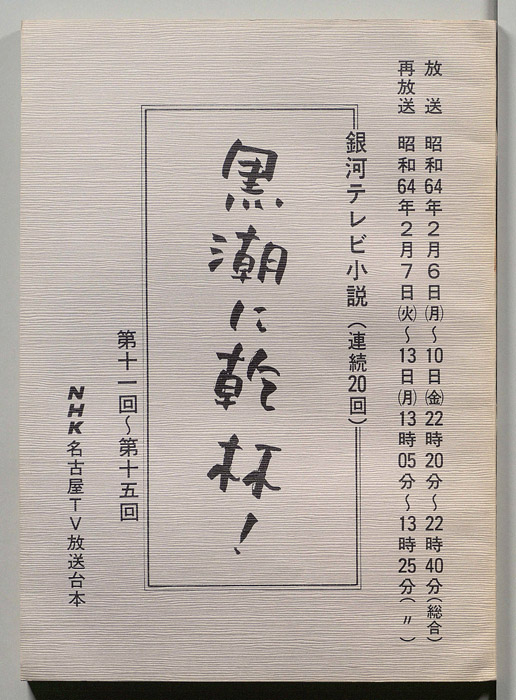 放送　昭和64年2月6日㈪〜10日㈮22時20分〜22時40分(総合)
再放送　昭和64年2月7日㈫〜13日㈪13時05分〜13時25分(〃)
銀河テレビ小説(連続20回)
黒潮に乾杯!
第十一回〜第十五回
NHK名古屋TV放送台本